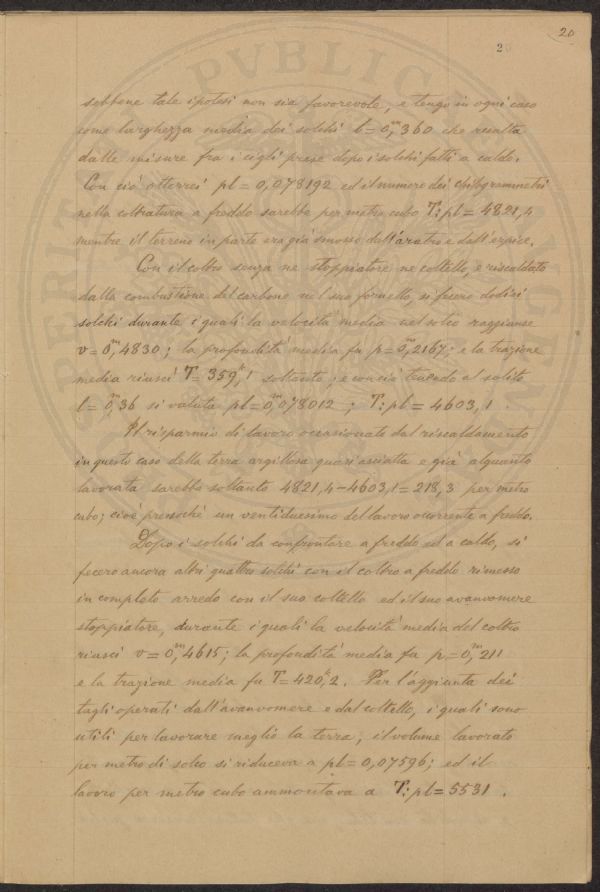 20
20
sebbene tale ipotesi non sia favorevole, e tengo in ogni caso
come larghezza media dei solchi l = 0,ᵐ360 che risulta
dalle misure fra i cigli prese dopo i solchi fatti a caldo.
Con ciò otterrei pl = 0,078192 ed il numero dei chilogrammetri
nella coltratura a freddo sarebbe per metro cubo T:pl = 4821,4
mentre il terreno in parte era già smosso dall'aratro e dall'erpice.
Con il coltro senza ne stoppiatore ne coltello, e riscaldato
dalla combustione del carbone nel suo fornello, si fecero dodici
solchi durante i quali la velocità media nel solco raggiunse
v = 0,ᵐ4830; la profondità media fu p = 0,ᵐ2167; e la trazione
media riuscì T = 359,ᵏ1 soltanto; e con ciò tenendo al solito
l = 0,ᵐ36 si valuta pl = 0,ᵐ078012; T:pl = 4603,1.
Il risparmio di lavoro occasionato dal riscaldamento
in questo caso della terra argillosa quasi asciutta e già alquanto
lavorata sarebbe soltanto 4821,4 – 4603,1 = 218,3 per metro
cubo; cioè pressochè un ventiduesimo del lavoro ocorrente a freddo.
Dopo i solchi da confrontare a freddo ed a caldo, si
fecero ancora altri quattro solchi con il coltro a freddo rimesso
in completo arredo con il suo coltello ed il suo avanvomere
stoppiatore, durante i quali la velocità media del coltro
riuscì v = 0,ᵐ4615; la profondità media fu p = 0,ᵐ211
e la trazione media fu T = 420,ᵏ2. Per l'aggiunta dei
tagli operati dall'avanvomere e dal coltello, i quali sono
utili per lavorare meglio la terra, il volume lavorato
per metro di solco si riduceva a pl = 0,07596; ed il
lavoro per metro cubo ammontava a T:pl = 5531.